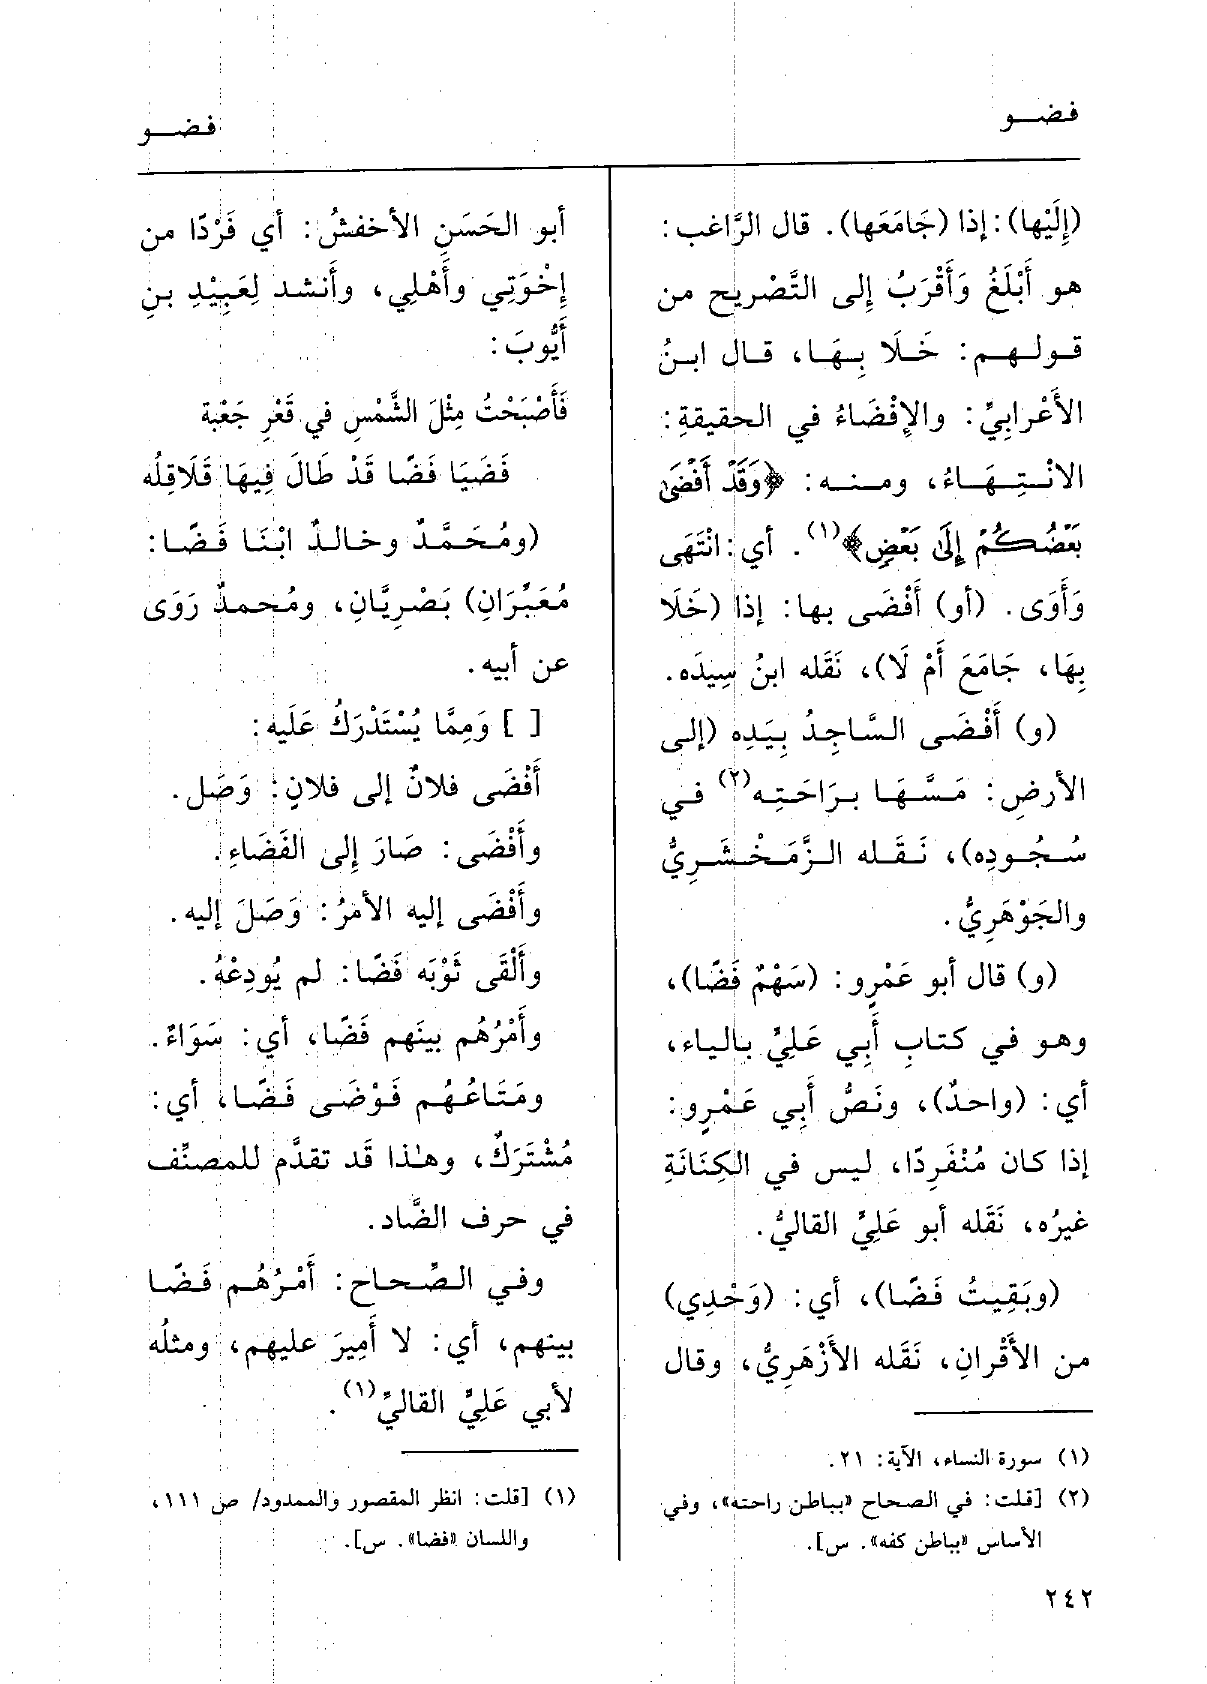 فضو
فضو
(إِلَيْها): إذا (جَامَعَها). قال الرَّاغب:
هو أَبْلَغُ وَأَقْرَبُ إلى التَّصْريح من
قولهم: خَلَا بِهَا، قال ابنُ
الأَعْرابِيِّ: والإِفْضَاءُ في الحقيقةِ:
الانْتِهَاءُ، ومنه: ﴿وَقَدْ أَفْضَىٰ
بَعْضُكُمْ إِلَىٰ بَعْضٍ﴾(١). أي: انْتَهَى
وَأَوَى. (أو) أَفْضَى بها: إذا (خَلَا
بِهَا، جَامَعَ أَمْ لَا)، نَقَله ابنُ سِيدَه.
(و) أَفْضَى السَّاجِدُ بِيَدِه (إلى
الأرضِ: مَسَّهَا بِرَاحَتِه(٢) في
سُجُودِه)، نَقَله الزَّمَخْشَرِيُّ
والجَوْهَرِيُّ.
(و) قال أبو عَمْرٍو: (سَهْمٌ فَضًا)،
وهو في كتابِ أَبِي عَلِيٍّ بالياء،
أي: (واحدٌ)، ونَصُّ أَبِي عَمْرٍو:
إذا كان مُنْفَرِدًا، ليس في الكِنَانَةِ
غيرُه، نَقَله أبو عَلِيٍّ القاليُّ.
(وبَقِيتُ فَضًا)، أي: (وَحْدِي)
من الأَقْرانِ، نَقَله الأَزْهَرِيُّ، وقال
(١) سورة النساء، الآية: ٢١.
(٢) [قلت: في الصحاح «بباطن راحته»، وفي
الأساس «بباطن كفه». س].
٢٤٢
أبو الحَسَنِ الأخفشُ: أي فَرْدًا من
إِخْوَتِي وأَهْلِي، وأَنشد لِعَبِيْدِ بنِ
أَيُّوبَ:
فَأَصْبَحْتُ مِثْلَ الشَّمْسِ في قَعْرِ جَعْبَة
فَضَيَا فَضًا قَدْ طَالَ فِيهَا قَلَاقِلُه
(ومُحَمَّدٌ وخالدٌ ابْنَا فَضًا:
مُعَبِّرَانِ) بَصْرِيَّانِ، ومُحمدٌ رَوَى
عن أبيه.
[ ] وَمِمَّا يُسْتَدْرَكُ عَلَيه:
أَفْضَى فلانٌ إلى فلانٍ: وَصَل.
وأَفْضَى: صَارَ إلى الفَضَاءِ.
وأَفْضَى إليه الأمرُ: وَصَلَ إليه.
وأَلْقَى ثَوْبَه فَضًا: لم يُودِعْهُ.
وأَمْرُهُم بينَهم فَضًا، أي: سَوَاءٌ.
ومَتَاعُهُم فَوْضَى فَضًا، أي:
مُشْتَرَكٌ، وهـٰذا قد تقدَّم للمصنِّف
في حرف الضَّاد.
وفي الصِّحاح: أَمْرُهُم فَضًا
بينهم، أي: لا أَمِيرَ عليهم، ومثلُه
لأبي عَلِيٍّ القاليِّ(١).
(١) [قلت: انظر المقصور والممدود/ ص ١١١،
واللسان «فضا». س].